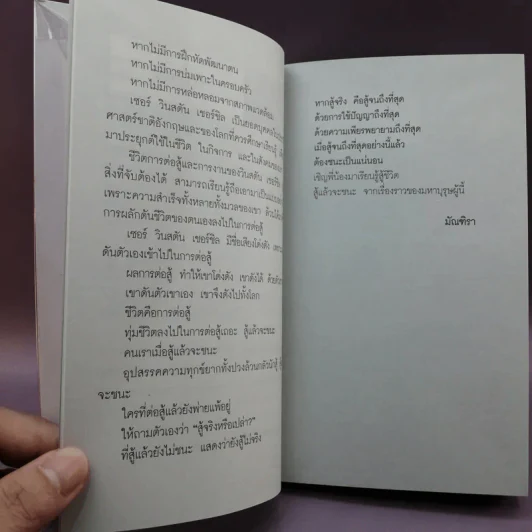 หากไม่มีการฝึกหัดพัฒนาตน
หากไม่มีการบ่มเพาะในครอบครัว
หากไม่มีการหล่อหลอมจากสภาพแวดล้อม
เซอร์ วินสตัน เชอร์ชิล เป็นยอดบุคคลใน
ศาสตร์ชาติอังกฤษและของโลกที่ควรศึกษาเรียนรู้
มาประยุกต์ใช้ในชีวิต ในกิจการ และในสังคม
ชีวิตการต่อสู้และการงานของวินสตัน เชอร์ชิล
สิ่งที่จับต้องได้ สามารถเรียนรู้ถือเอามาเป็น
เพราะความสำเร็จทั้งหลายทั้งมวลของเขา ล้วน
การผลักดันชีวิตของตนเองลงไปในการต่อสู้
เซอร์ วินสตัน เชอร์ชิล มีชื่อเสียงโด่งดัง เพราะ
ดันตัวเองเข้าไปในการต่อสู้
ผลการต่อสู้ ทำให้เขาโด่งดัง เขาดังได้ ด้วย
เขาดันตัวเขาเอง เขาจึงดังไปทั้งโลก
ชีวิตคือการต่อสู้
ทุ่มชีวิตลงไปในการต่อสู้เถอะ สู้แล้วจะชนะ
คนเราเมื่อสู้แล้วจะชนะ
อุปสรรคความทุกข์ยากทั้งปวงล้วนกลัวนักสู้
จะชนะ
ใครที่ต่อสู้แล้วยังพ่ายแพ้อยู่
ให้ถามตัวเองว่า “สู้จริงหรือเปล่า?”
ที่สู้แล้วยังไม่ชนะ แสดงว่ายังสู้ไม่จริง
หากสู้จริง คือสู้จนถึงที่สุด
ด้วยการใช้ปัญญาถึงที่สุด
ด้วยความเพียรพยายามถึงที่สุด
เมื่อสู้จนถึงที่สุดอย่างนี้แล้ว
ต้องชนะเป็นแน่นอน
เชิญพี่น้องมาเรียนรู้สู้ชีวิต
สู้แล้วจะชนะ จากเรื่องราวของมหาบุรุษผู้นี้
มัณฑิรา